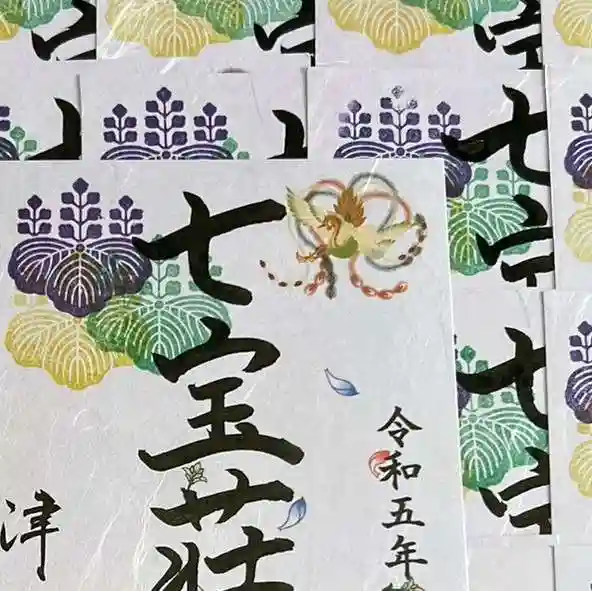 令和五年
七宝荘
津